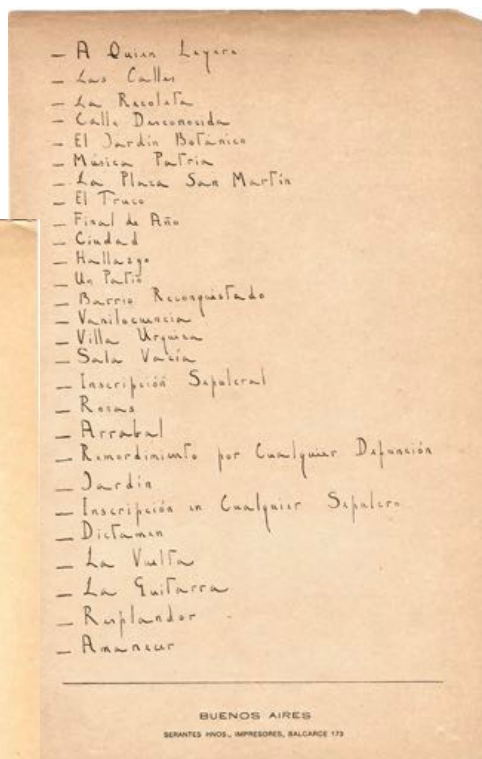 — A Quien Leyere
— Las Calles
— La Recoleta
— Calle Desconocida
— El Jardín Botánico
— Música Patria
— La Plaza San Martín
— El Truco
— Final de Año
— Ciudad
— Hallazgo
— Un Patio
— Barrio Reconquistado
— Vanilocuencia
— Villa Urquiza
— Sala Vacía
— Inscripción Sepulcral
— Rosas
— Arrabal
— Remordimiento por Cualquier Defunción
— Jardín
— Inscripción en Cualquier Sepulcro
— Dictamen
— La Vuelta
— La Guitarra
— Resplandor
— Amanecer
BUENOS AIRES
SERANTES HNOS., IMPRESORES, BALCARCE 173